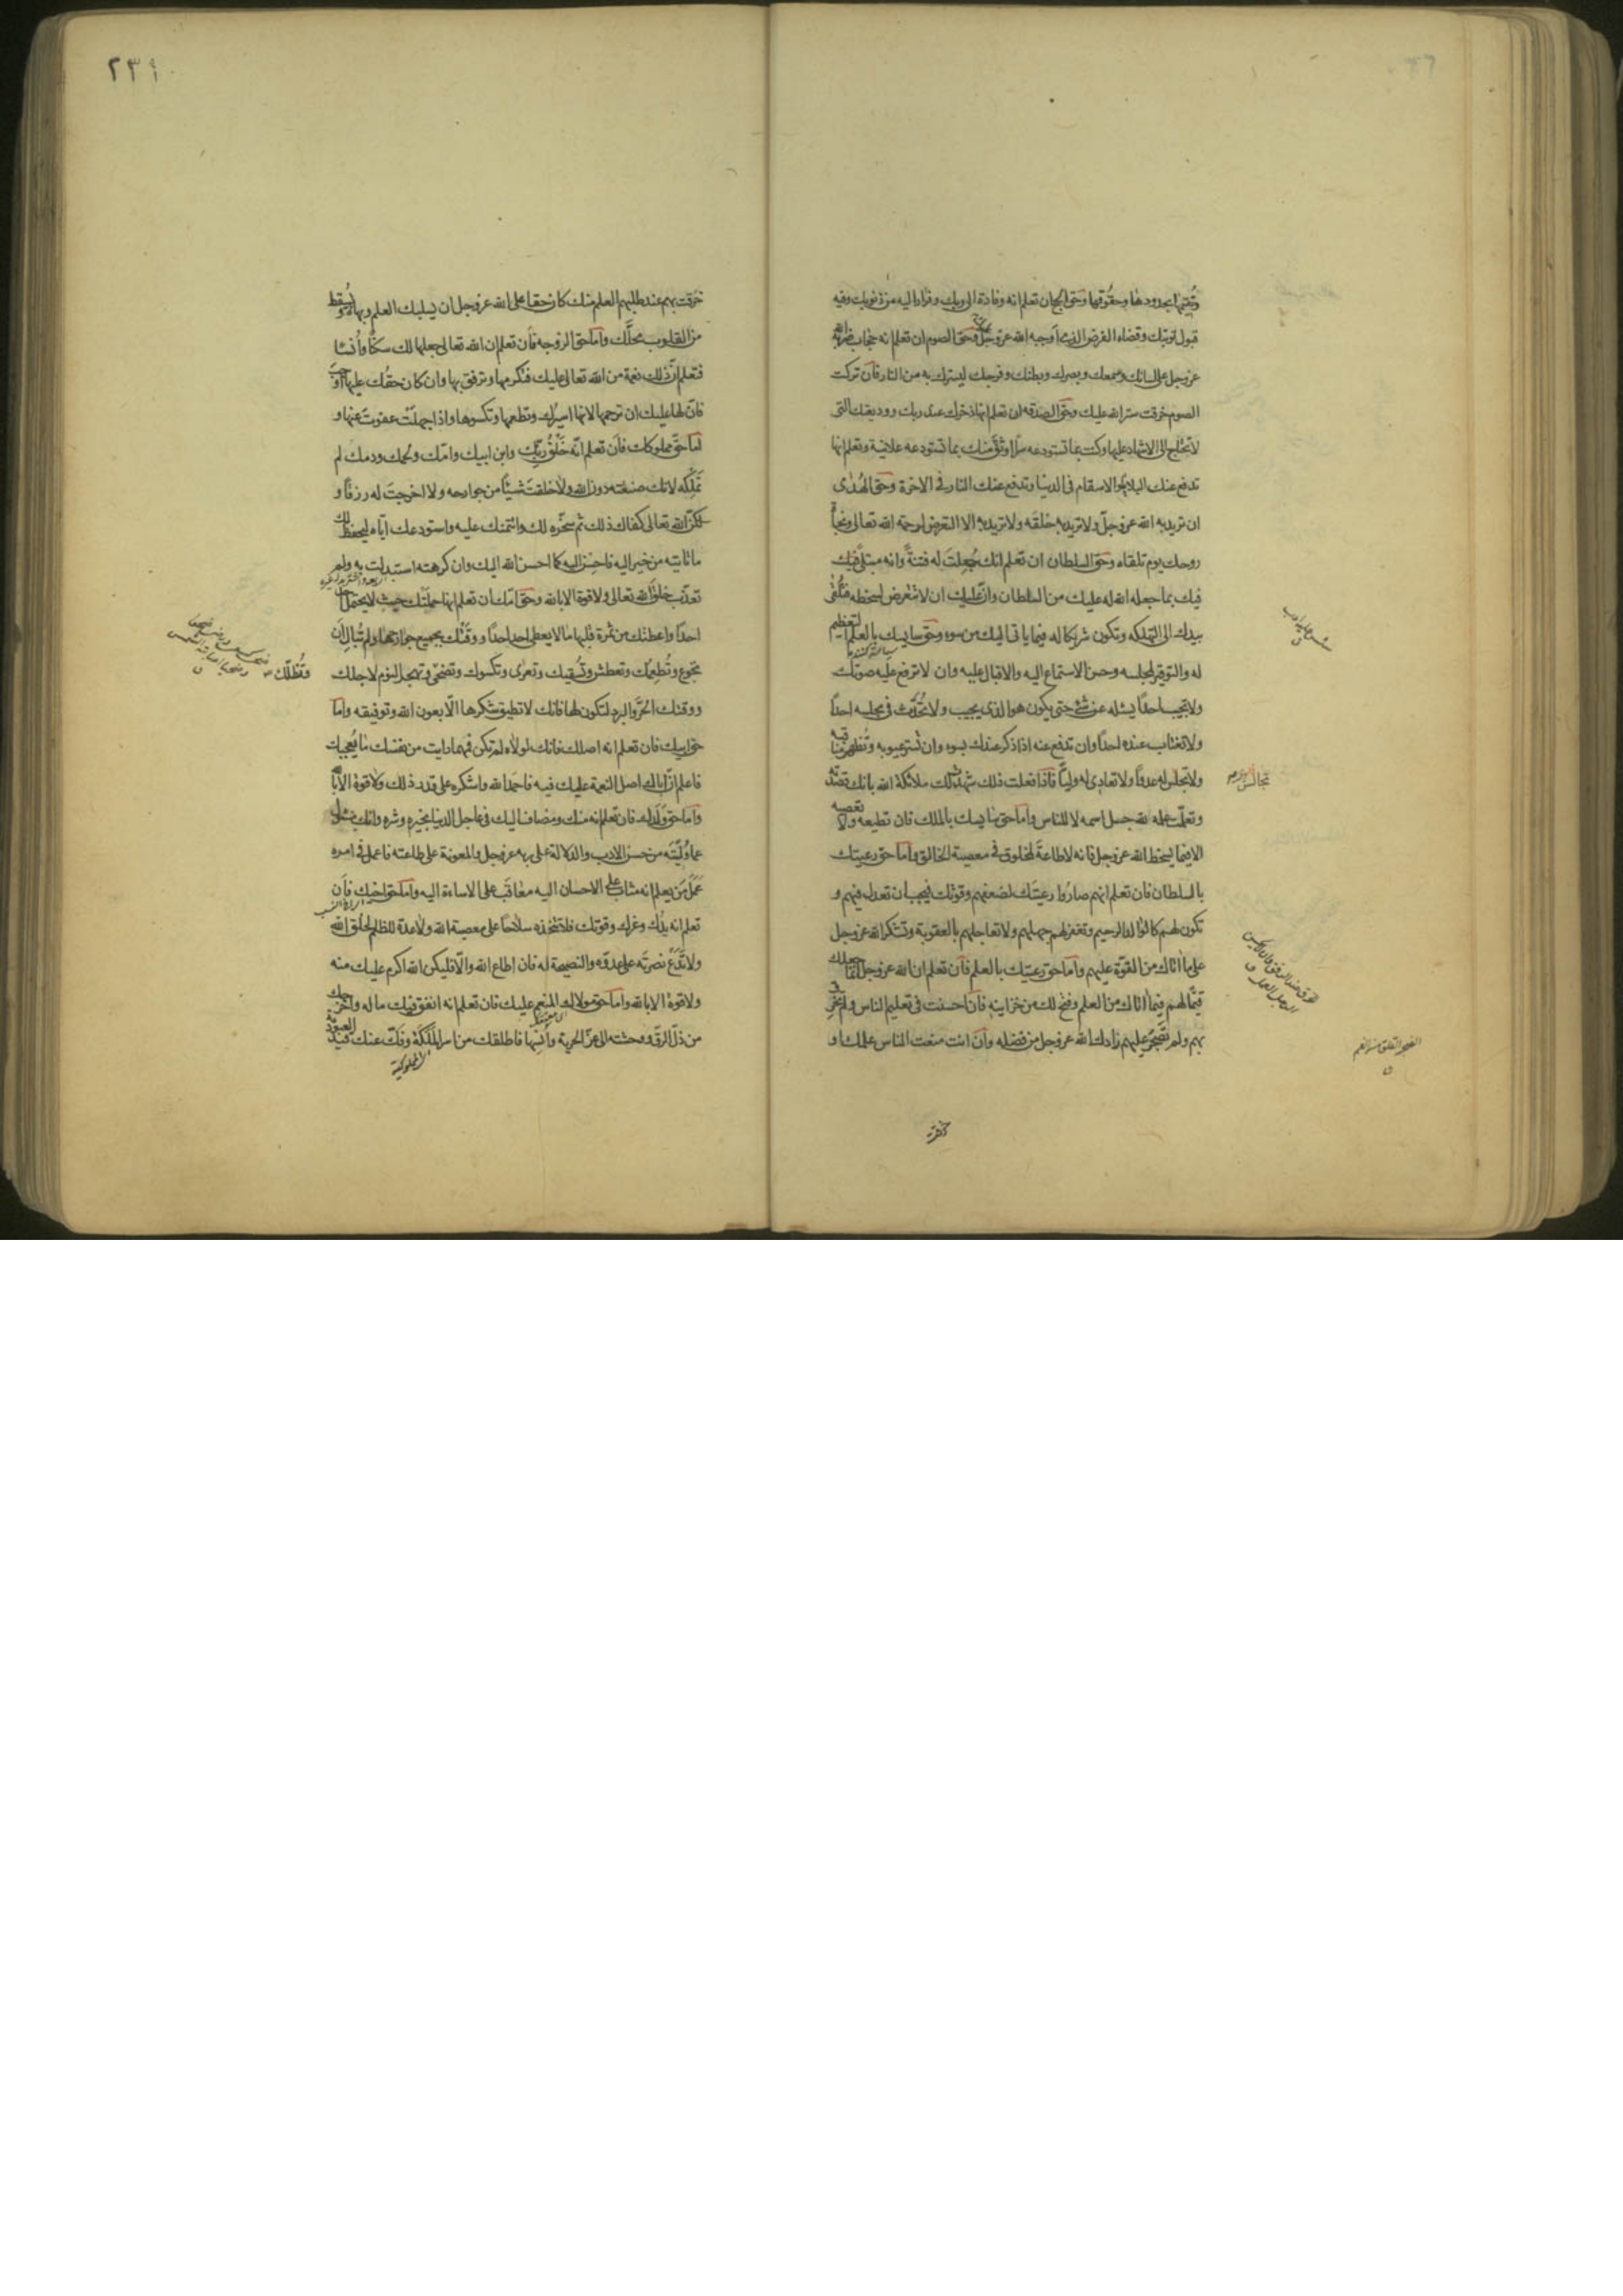 وتقيمها بحدودها وحقوقها وحق الحج ان تعلم انه وفادة الى ربك وفرار اليه من ذنوبك وفيه
قبول توبتك وقضاء الفرض الذي اوجبه الله عز وجل عليك وحق الصوم ان تعلم انه حجاب ضربه الله
عز وجل على لسانك وسمعك وبصرك وبطنك وفرجك ليسترك به من النار فان تركت
الصوم خرقت ستر الله عليك وحق الصدقة ان تعلم انها ذخرك عند ربك ووديعتك التي
لا تحتاج الى الاشهاد عليها وكنت بما تستودعه سرا اوثق منك بما تستودعه علانية وتعلم انها
تدفع عنك البلايا والاسقام في الدنيا وتدفع عنك النار في الاخرة وحق الهدى
ان تريد به الله عز وجل ولا تريد به خلقه ولا تريد به الا التعرض لرحمة الله تعالى ونجاة
روحك يوم تلقاه وحق السلطان ان تعلم انك جعلت له فتنة وانه مبتلى فيك
بما جعله الله له عليك من السلطان وان عليك ان لا تتعرض لسخطه فتلقى
بيدك الى التهلكه وتكون شريكا له فيما ياتى اليك من سوء وحق سايسك بالعلم التعظيم
له والتوقير لمجلسه وحسن الاستماع اليه والاقبال عليه وان لا ترفع عليه صوتك
ولا تجيب احدا يسئله عن شئ حتى يكون هو الذى يجيب ولا تحدث في مجلسه احدا
ولا تغتاب عنده احدا وان تدفع عنه اذا ذكر عندك بسوء وان تستر عيوبه وتظهر مناقبه
ولا تجلس له عدوا ولا تعادى له وليا فاذا فعلت ذلك شهد لك ملائكة الله بانك قصدته
تجالس
وتعلمت علمه لله جل اسمه لا للناس واما حق سايسك بالملك فان تطيعه ولا تعصيه
الا فيما يسخط الله عز وجل فانه لا طاعة لمخلوق في معصية الخالق واما حق رعيتك
بالسلطان فان تعلم انهم صاروا رعيتك لضعفهم وقوتك فيجب ان تعدل فيهم و
تكون لهم كالوالد الرحيم وتغفر لهم جهلهم ولا تعاجلهم بالعقوبة وتشكر الله عز وجل
على ما اتاك من القوة عليهم واما حق رعيتك بالعلم فان تعلم ان الله عز وجل انما جعلك
قيما لهم فيما اتاك من العلم وفتح لك من خزاينه فان احسنت في تعليم الناس ولم تخرق
بهم ولم تضجر عليهم زادك الله عز وجل من فضله وان انت منعت الناس علمك او
خرقت
٢٣١
خرقت بهم عند طلبهم العلم منك كان حقا على الله عز وجل ان يسلبك العلم وبهاءه ويسقط
من القلوب محلك واما حق الزوجه فان تعلم ان الله تعالى جعلها لك سكنا وانسا
فتعلم ان ذلك نعمة من الله تعالى عليك فتكرمها وترفق بها وان كان حقك عليها اوجب
فان لها عليك ان ترحمها لانها اسيرك وتطعمها وتكسوها واذا جهلت عفوت عنها و
اما حق مملوكك فان تعلم انه خلق ربك وابن ابيك وامك ولحمك ودمك لم
تملكه لانك صنعته دون الله ولا خلقت شيئا من جوارحه ولا اخرجت له رزقا و
لكن الله تعالى كفاك ذلك ثم سخره لك وائتمنك عليه واستودعك اياه ليحفظ لك
ما تاتيه من خير اليه فاحسن اليه كما احسن الله اليك وان كرهته استبدلت به ولم
تعذب خلق الله تعالى ولا قوة الا بالله وحق امك ان تعلم انها حملتك حيث لا يحتمل احد
احدا واعطتك من ثمرة قلبها ما لا يعطى احد احدا ووقتك بجميع جوارحها ولم تبال ان
تجوع وتطعمك وتعطش وتسقيك وتعرى وتكسوك وتضحى وتظلك وتهجر النوم لاجلك
ووقتك الحر والبرد لتكون لها فانك لا تطيق شكرها الا بعون الله وتوفيقه واما
حق ابيك فان تعلم انه اصلك فانك لولاه لم تكن فمهما رايت من نفسك ما يعجبك
فاعلم ان اباك اصل النعمة عليك فيه فاحمد الله واشكره على قدر ذلك ولا قوة الا بالله
واما حق ولدك فان تعلم انه منك ومضاف اليك في عاجل الدنيا بخيره وشره وانك مسئول
عما وليته من حسن الادب والدلالة على ربه عز وجل والمعونة على طاعته فاعمل في امره
عمل من يعلم انه مثاب على الاحسان اليه معاقب على الاساءة اليه واما حق اخيك فان
تعلم انه يدك وعزك وقوتك فلا تتخذه سلاحا على معصية الله ولا عدة للظلم لخلق الله
ولا تدع نصرته على عدوه والنصيحة له فان اطاع الله والا فليكن الله اكرم عليك منه
ولا قوة الا بالله واما حق مولاك المنعم عليك فان تعلم انه انفق فيك ماله واخرجك
من ذل الرق ووحشته الى عز الحرية وانسها فاطلقك من اسر الملكة وفك عنك قيد العبودية